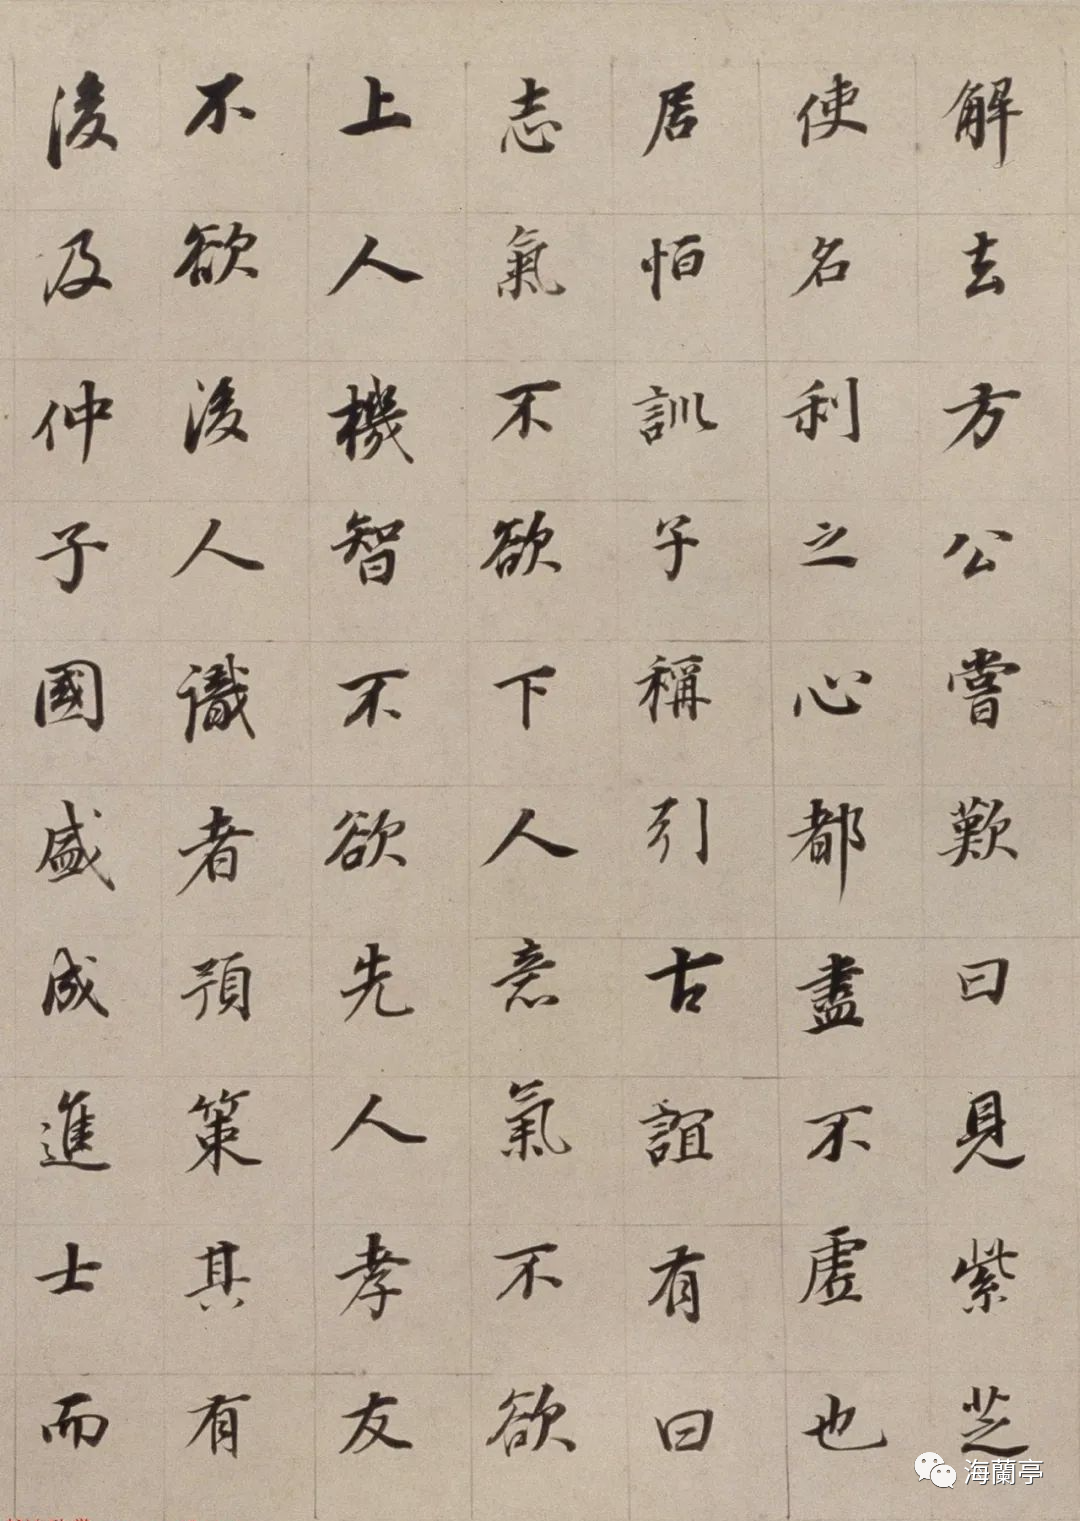 解去方公嘗歎曰見紫芝
使名利之心都盡不虛也
居恒訓子稱引古誼有曰
志氣不欲下人意氣不欲
上人機智不欲先人孝友
不欲後人識者預策其有
後及仲子國盛成進士而
海蘭亭